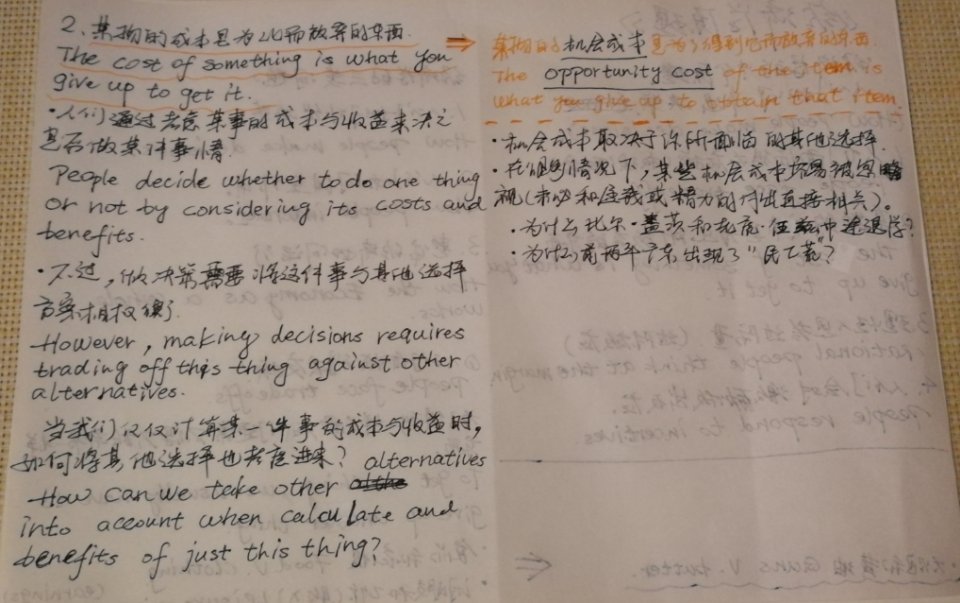 2、某物的成本是为此而放弃的东西.
The cost of something is what you
give up to get it.
·人们通过考虑某事的成本与收益来决定
是否做某件事情.
People decide whether to do one thing
or not by considering its costs and
benefits.
·不过，做决策需要将这件事与其他选择
方案相权衡.
However, making decisions requires
trading off this thing against other
alternatives.
当我们仅仅计算某一件事的成本与收益时,
如何将其他选择也考虑进来? alternatives
How can we take other
into account when calculate and
benefits of just this thing?
⇒ 某物的机会成本是为了得到它而放弃的东西
The opportunity cost of the item is
what you give up to obtain that item.
·机会成本取决于你所面临的其他选择.
·在很多情况下，某些机会成本容易被忽
视(未必和金钱或精力的付出直接相关)。
·为什么比尔·盖茨和老虎·伍兹中途退学?
·为什么前两年广东出现了"民工荒"?
3.理性人思考边际量
rational people think at the margin
4.人们会对激励做出反应.
people respond to incentives
大炮和黄油 Guns V. butter.